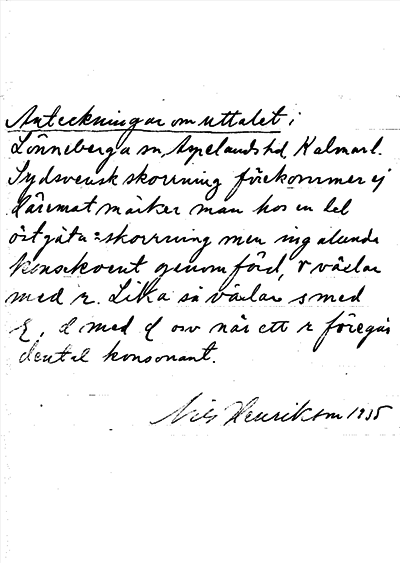 Anteckningar om uttalet i
Lönneberga sn, Aspelands hd, Kalmar l.
Sydsvensk skorrning förekommer ej
däremot märker man hos en del
östgöta-skorrning men ingalunda
konsekvent genomförd, r växlar
med r. Lika så växlar s med
d med osv när ett r föregår
dental konsonant.
Nils Henrikson 1935